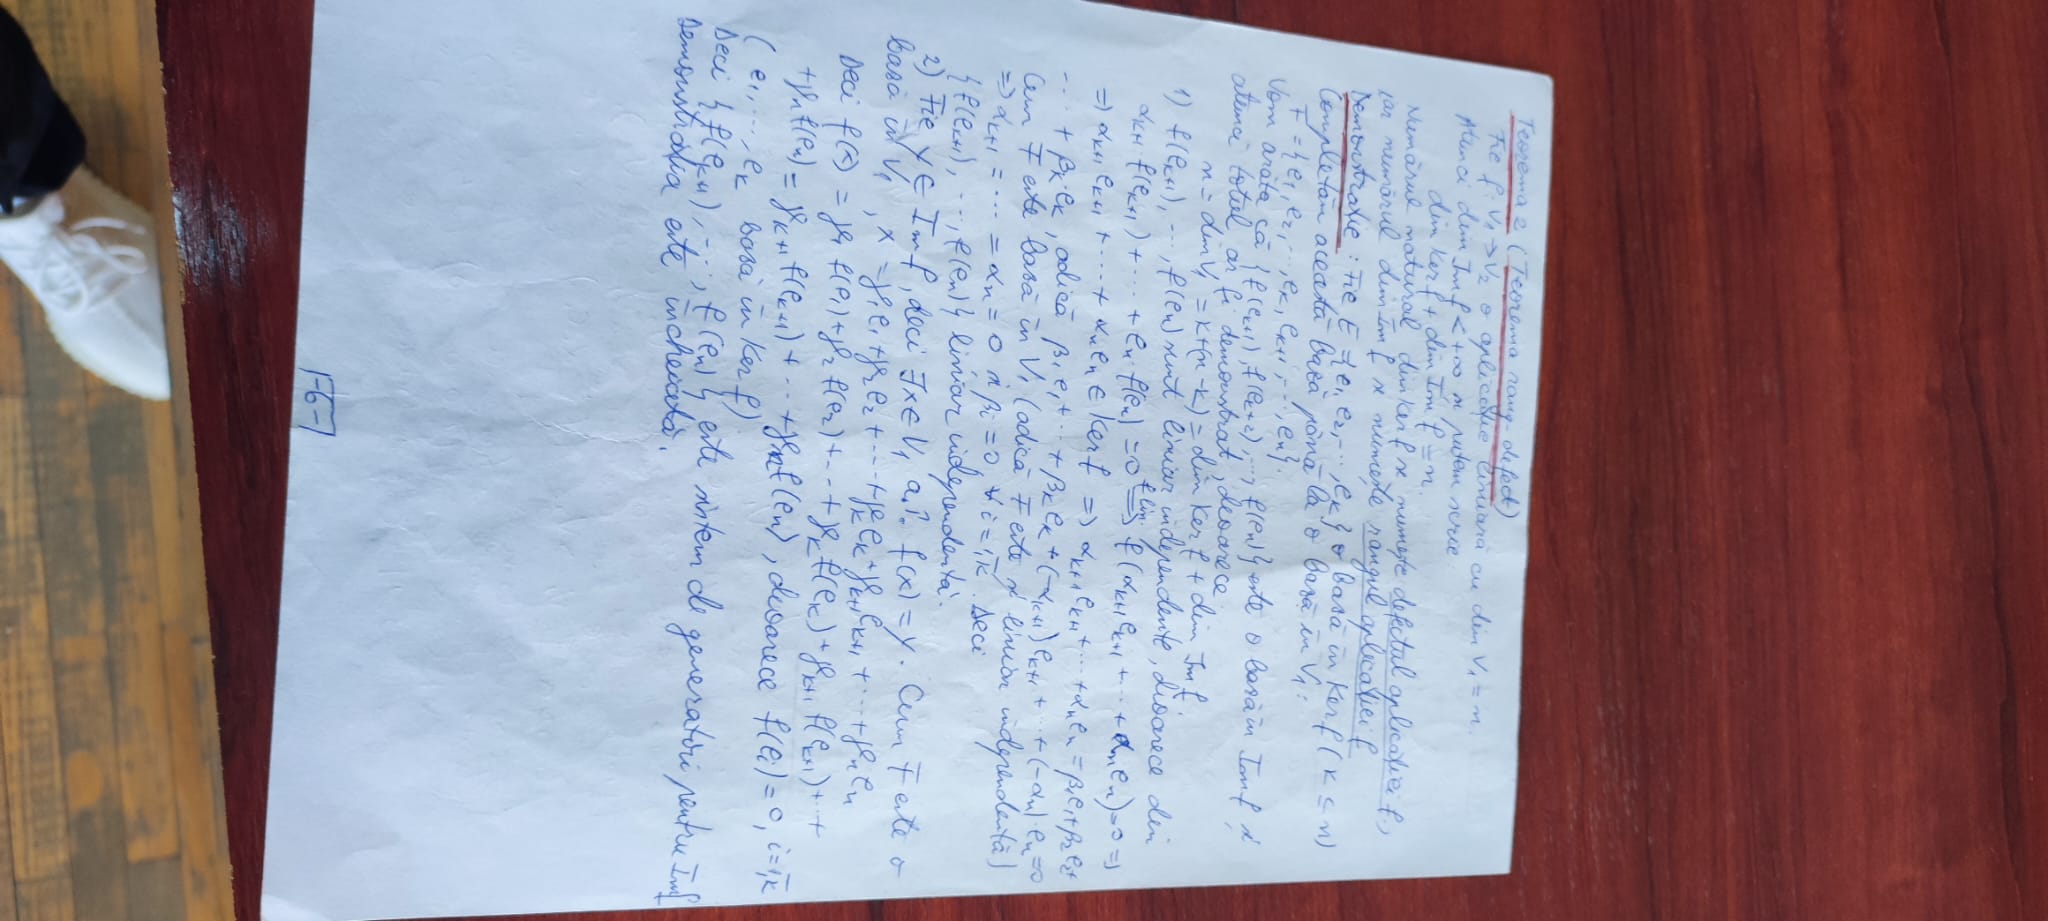 Teorema 2 (Teorema rang-defect)
Fie f: V₁ → V₂ o aplicație liniară cu dim V₁ = n.
Atunci dim Im f < +∞ și putem scrie:
dim Ker f + dim Im f = n.
Numărul natural dim Ker f se numește defectul aplicației f,
iar numărul dim Im f se numește rangul aplicației f
Demonstrație: Fie E = {e₁, e₂, ..., eₖ} o bază în Ker f (k ≤ n)
Completăm această bază până la o bază în V₁:
F = {e₁, e₂, ..., eₖ, eₖ₊₁, ..., eₙ}.
Vom arăta că {f(eₖ₊₁), f(eₖ₊₂), ..., f(eₙ)} este o bază în Im f și
atunci totul ar fi demonstrat, deoarece
n = dim V₁ = k + (n-k) = dim Ker f + dim Im f.
1) f(eₖ₊₁), ..., f(eₙ) sunt liniar independente, deoarece din
αₖ₊₁ f(eₖ₊₁) + ... + eₙ f(eₙ) = 0 ⇒ f lin. f(αₖ₊₁eₖ₊₁ + ... + αₙeₙ) = 0 ⇒
⇒ αₖ₊₁eₖ₊₁ + ... + αₙeₙ ∈ Ker f ⇒ αₖ₊₁eₖ₊₁ + ... + αₙeₙ = β₁e₁ + β₂e₂ +
... + βₖeₖ, adică β₁e₁ + ... + βₖeₖ + (-αₖ₊₁)eₖ₊₁ + ... + (-αₙ)eₙ = 0
Cum F este bază în V₁ (adică F este și liniar independentă)
⇒ αₖ₊₁ = ... = αₙ = 0 și βᵢ = 0, ∀ i = 1,k. Deci
{f(eₖ₊₁), ..., f(eₙ)} liniar independentă.
2) Fie y ∈ Im f, deci ∃ x ∈ V₁ a.î. f(x) = y. Cum F este o
bază în V₁, x = γ₁e₁ + γ₂e₂ + ... + γₖeₖ + γₖ₊₁eₖ₊₁ + ... + γₙeₙ
Deci f(x) = γ₁ f(e₁) + γ₂ f(e₂) + ... + γₖ f(eₖ) + γₖ₊₁ f(eₖ₊₁) + ... +
+ γₙ f(eₙ) = γₖ₊₁ f(eₖ₊₁) + ... + γₙ f(eₙ), deoarece f(eᵢ) = 0, i = 1,k
(e₁, ..., eₖ bază în Ker f)
Deci {f(eₖ₊₁), ..., f(eₙ)} este sistem de generatori pentru Im f
Demonstrația este încheiată.